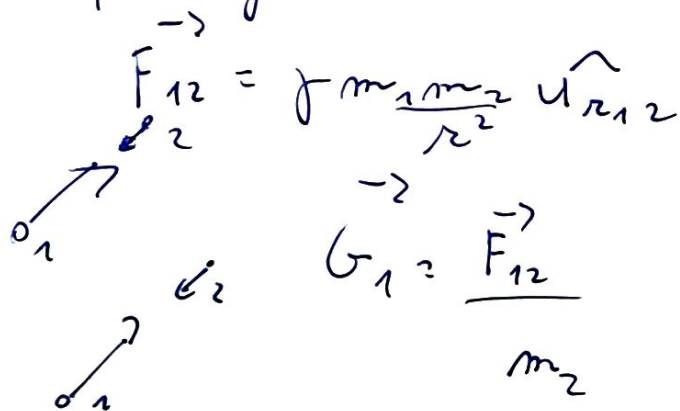 F⃗12 = γ m1m2/r² û r12
2
1
G⃗1 = F⃗12/m2
2
1